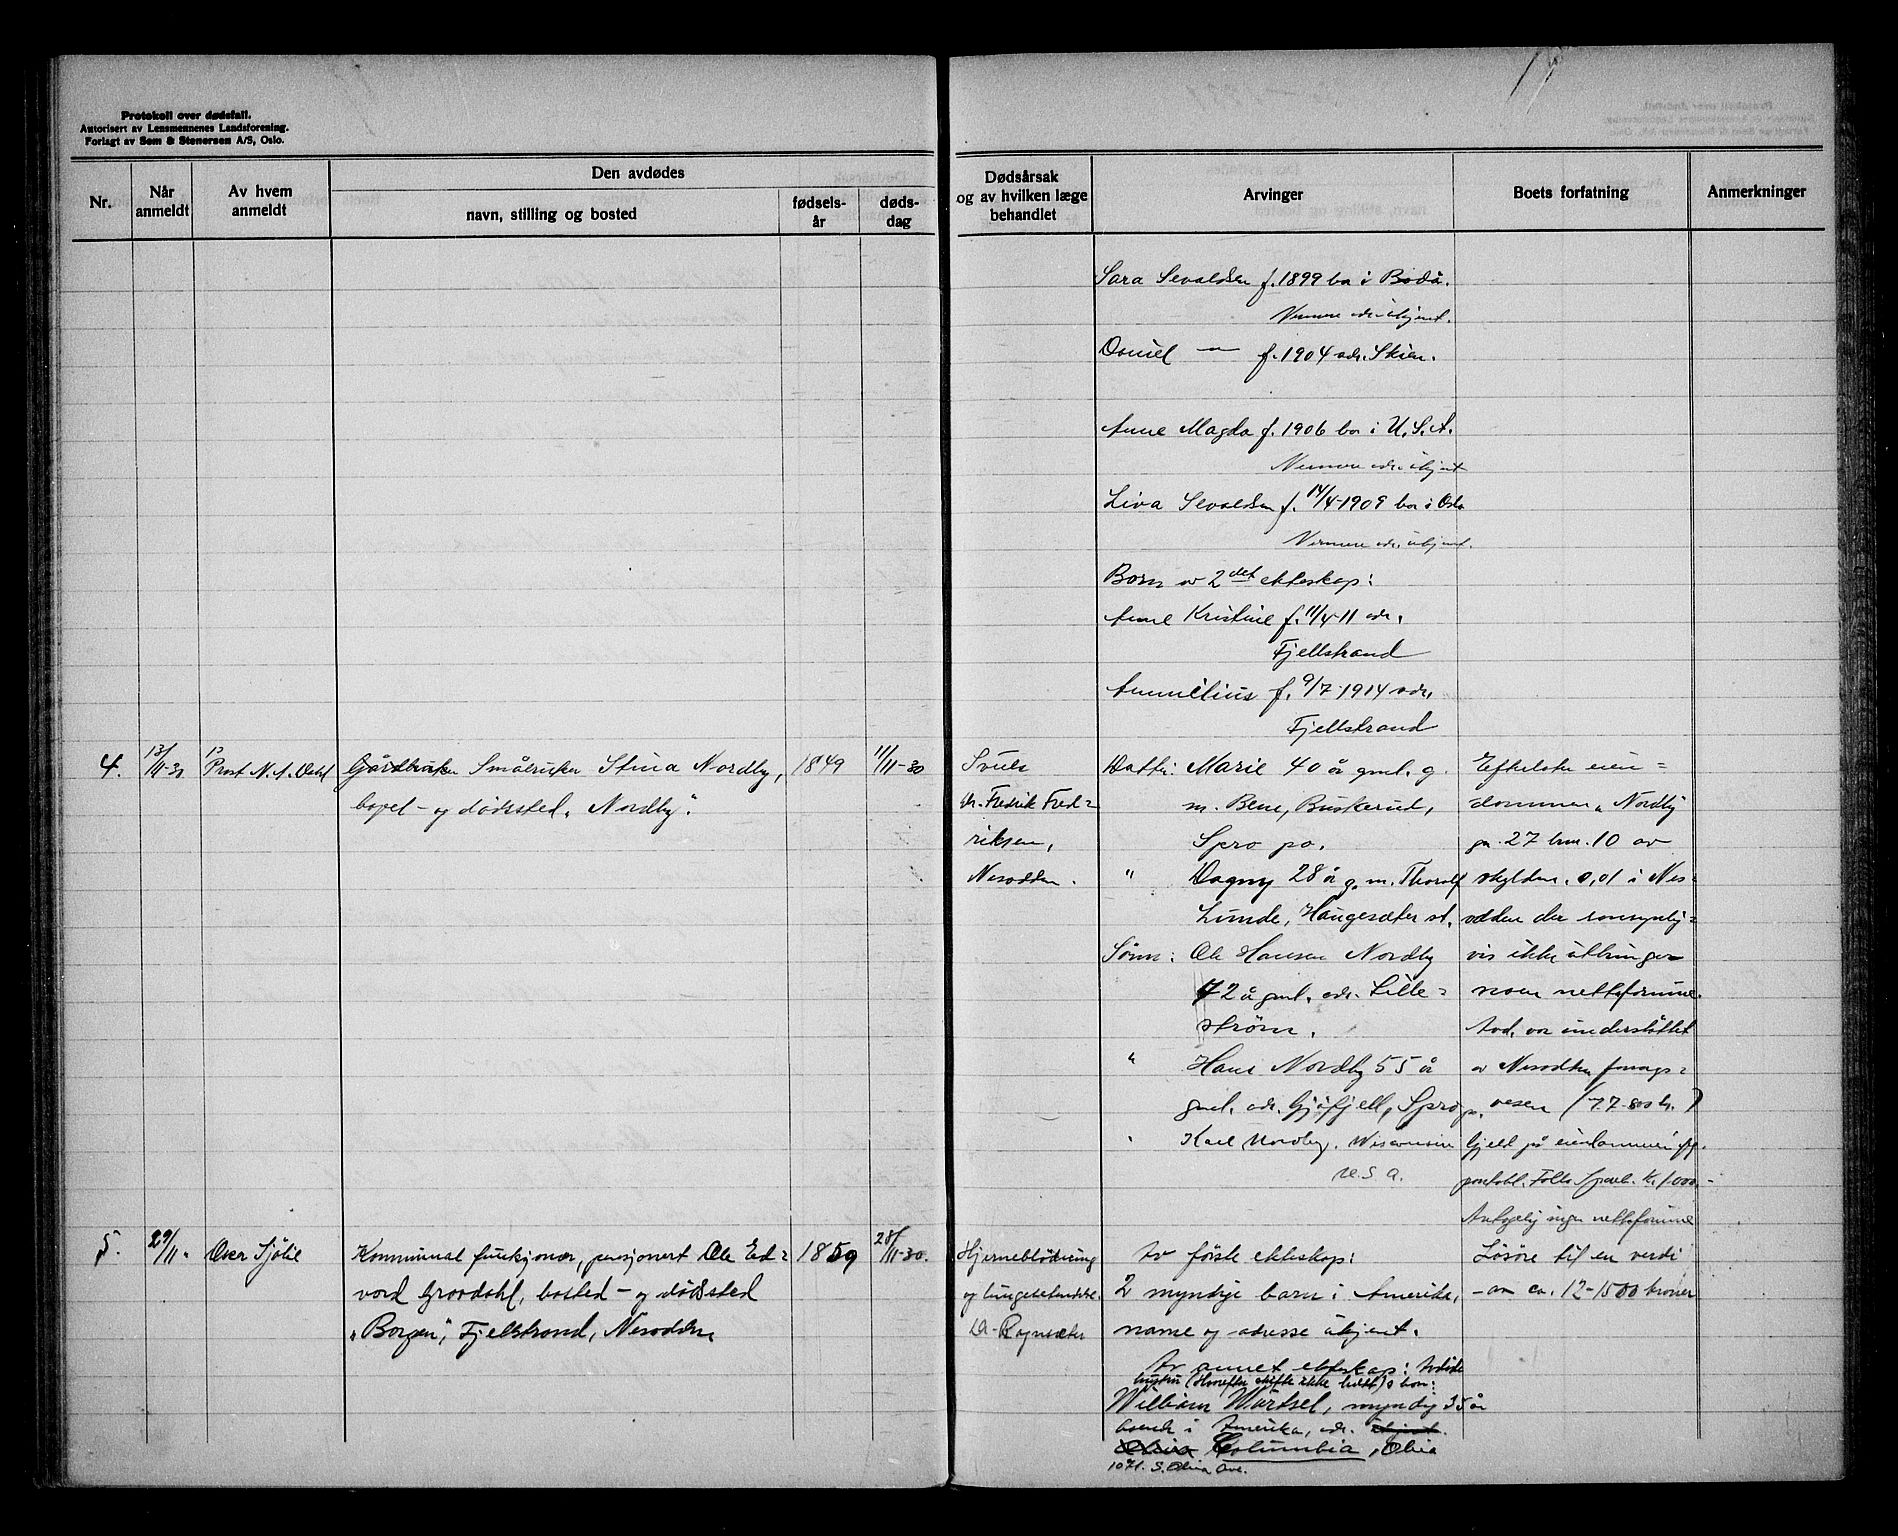 Protokoll over dødsfall.
Autorisert av Lensmennenes Landsforening.
Forlagt av Sem & Stenersen A/S, Oslo.
Nr.
Når anmeldt
Av hvem anmeldt
Den avdødes
navn, stilling og bosted
fødsels-år
døds-dag
Dødsårsak
og av hvilken læge
behandlet
Arvinger
Boets forfatning
Anmerkninger
Sara Sevaldsen f. 1899 bor i Bodø.
Nermere adr. ukjent.
Daniel — f. 1904 adr. Skien.
Anne Magda f. 1906 bor i U.S.A.
Nermere adr. ukjent
Liva Sevaldsen f. 14/4-1909 bor i Oslo
Nermere adr. ukjent.
Barn av 2det ekteskap:
Anne Kristine f. 11/4-11 adr.
Fjellstrand
f. 9/7-1914 adr.
Fjellstrand
4.
13/11-30
Prost N. A. Dahl
Gårdbruker Småbruker Stina Nordby,
bopel- og dødssted "Nordby".
1849
11/11-30
dr. Fredrik Fred=
riksen,
Nesodden.
Datter: Marie 40 år gml. g.
m. Bene, Buskerud,
Spro po.
" Dagny 28 år g. m. Thorolf
Lunde, Haugesæter st.
Sønn: Ole Hansen Nordby
42 år gml. adr. Lille=
strøm.
" Hans Nordby 55 år
gml. adr. Gjøfjell, Spro p.
" Karl Nordby, Wisconsin
U.S.A.
Efterlot eien=
dommen "Nordby
gn. 27 bnr. 10 av
skyldm. 0,01 i Nes=
odden der sansynlig=
vis ikke utbringer
noen nettoformue.
Avd. var understøttet
av Nesodden forsorgs=
vesen
Gjeld på eiendommen
Follo Spareb. kr. 1000,-
Antagelig ingen nettoformue
5.
29/11.
Over Sjølie
Kommunal funksjonær, pensjonert Ole Ed=
vard Grøndahl, bosted- og dødssted
"Borgen", Fjellstrand, Nesodden
1859
28/11-30.
Hjerneblødning
og lungebetendelse.
Dr. Rognsæter
Av første ekteskap:
2 myndige barn i Amerika,
navne og adresse ukjent.
Av annet ekteskap: Avdøde
hustru (Hvorefter skifte ikke holdt) s barn:
William Wartsel, myndig 35 år
boende i Amerika, adr. ukjent.
Ohio Columbia, Ohio
1071. S. Ohio Ave.
Løsøre til en verdi
av ca. 12-1500 kroner